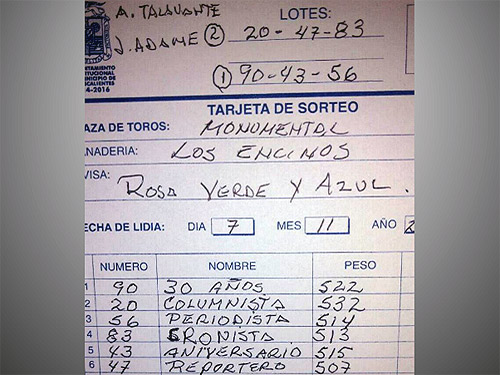 A. TALAVANTE
LOTES:
J. ADAME ② 20-47-83
① 90-43-56
TAMIENTO
TUCIONAL
NICIPIO DE
SCALIENTES
4-2016
TARJETA DE SORTEO
AZA DE TOROS: MONUMENTAL
NADERIA: LOS ENCINOS
VISA: ROSA VERDE Y AZUL.
ECHA DE LIDIA: DIA 7 MES 11 AÑO 2
NUMERO NOMBRE PESO
1 90 30 AÑOS 522
2 20 COLUMNISTA 532
3 56 PERIODISTA 514
4 83 CRONISTA 513
5 43 ANIVERSARIO 515
6 47 REPORTERO 507